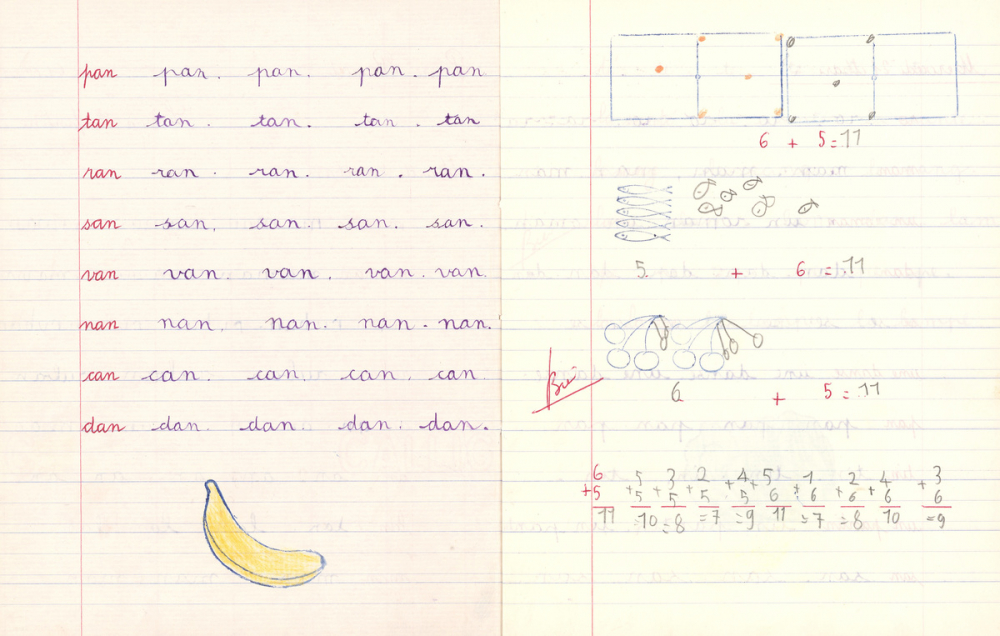 pan pan. pan. pan. pan
tan tan. tan. tan. tan
ran ran. ran. ran. ran.
san san. san. san. san.
van van. van. van. van.
nan nan. nan. nan. nan.
can can. can. can. can
dan dan. dan. dan. dan.
6 + 5 = 11
5 + 6 = 11
Bien
6 + 5 = 11
6 5 3 2 4 5 1 2 4 3
+5 +5 +5 +5 +5 +6 +6 +6 +6 +6
11 10 =8 =7 =9 11 =7 =8 10 =9